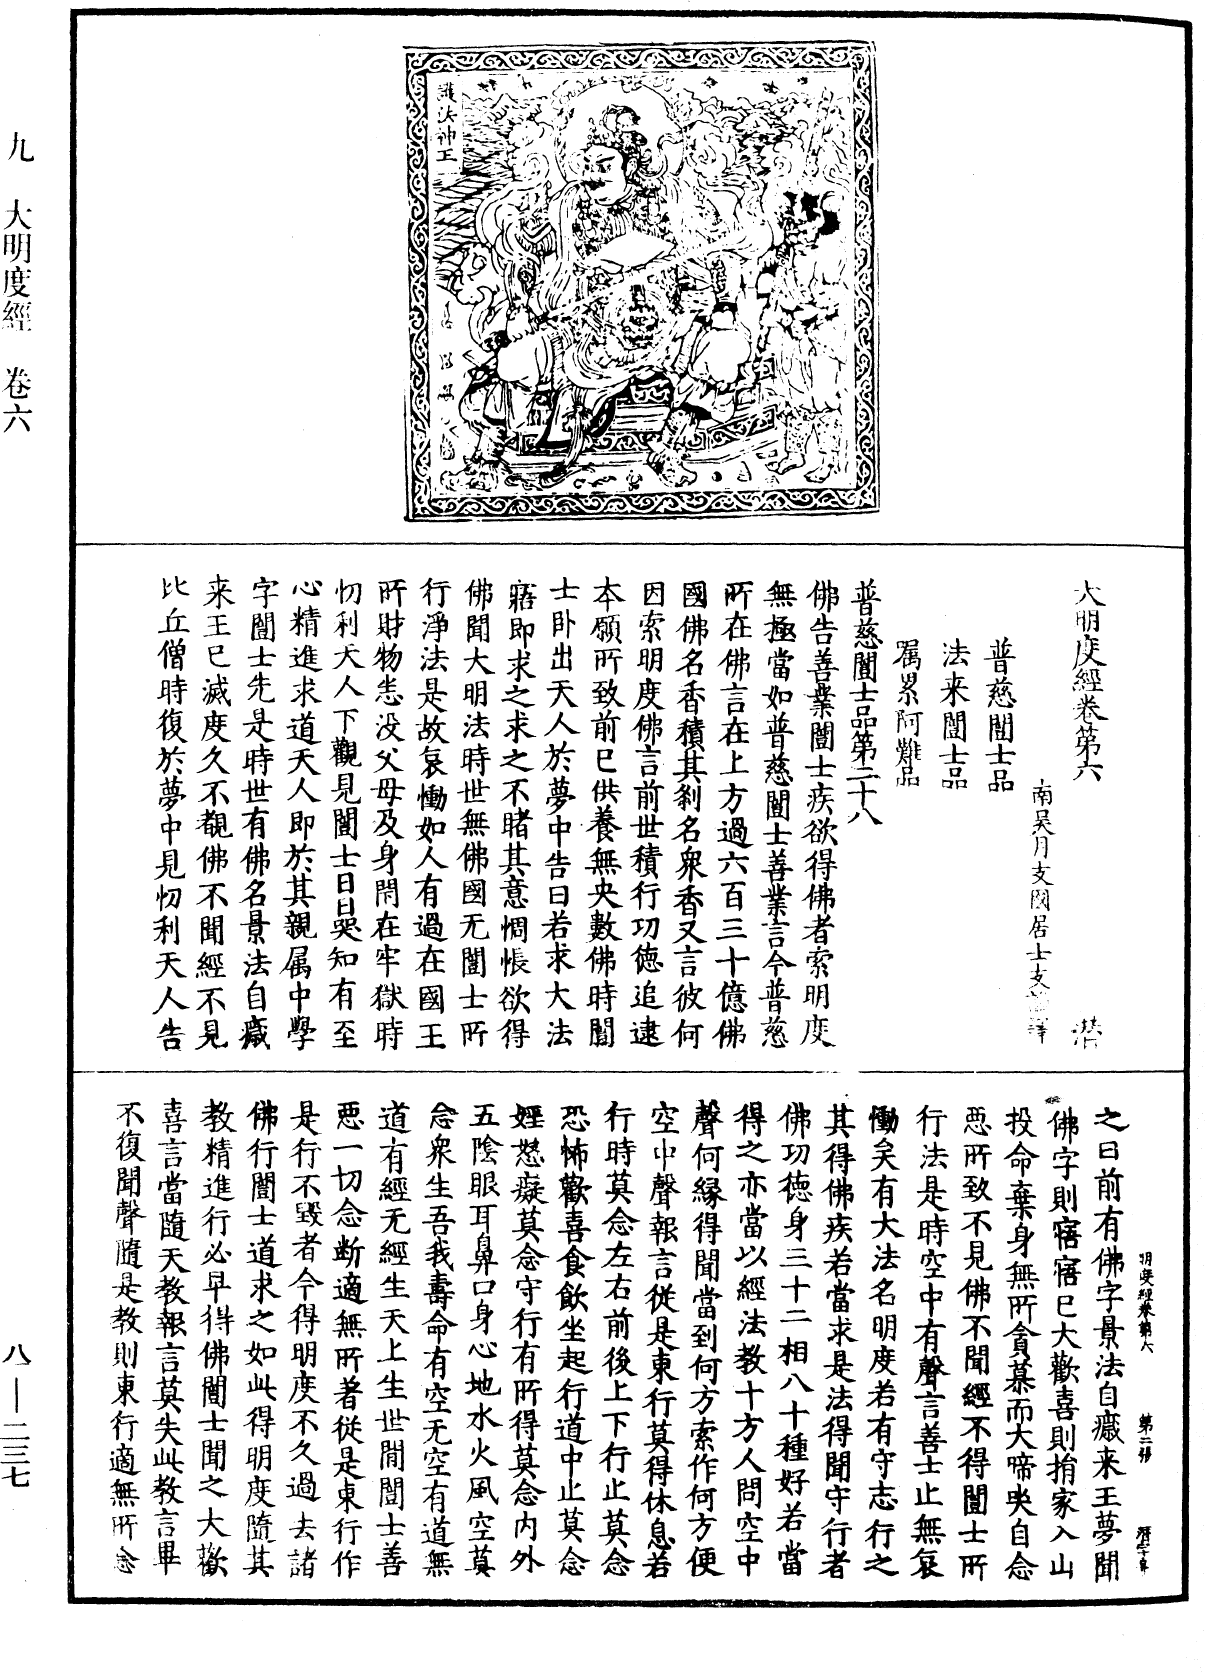 九　大明度經　卷六
八—二三七
護法神王
大明度經卷第六　潛
南吳月支國居士支謙譯
普慈闓士品
法来闓士品
属累阿難品
普慈闓士品第二十八
佛告善業闓士疾欲得佛者索明度
無極當如普慈闓士善業言今普慈
所在佛言在上方過六百三十億佛
國佛名香積其剎名衆香又言彼何
因索明度佛言前世積行功德追逮
本願所致前已供養無央數佛時闓
士卧出天人於夢中告曰若求大法
寤即求之求之不睹其意惆悵欲得
佛聞大明法時世無佛國无闓士所
行淨法是故哀慟如人有過在國王
所財物悉没父母及身閉在牢獄時
忉利天人下觀見闓士日日哭知有至
心精進求道天人即於其親属中學
字闓士先是時世有佛名景法自穢
来王已滅度久不覩佛不聞經不見
比丘僧時復於夢中見忉利天人告
之曰前有佛字景法自穢来王夢聞
佛字則寤寤已大歡喜則捐家入山
投命棄身無所貪慕而大啼哭自念
惡所致不見佛不聞經不得闓士所
行法是時空中有聲言善士止無哀
慟矣有大法名明度若有守志行之
其得佛疾若當求是法得聞守行者
佛功德身三十二相八十種好若當
得之亦當以經法教十方人問空中
聲何緣得聞當到何方索作何方便
空中聲報言從是東行莫得休息若
行時莫念左右前後上下行止莫念
恐怖歡喜食飲坐起行道中止莫念
婬怒癡莫念守行有所得莫念内外
五陰眼耳鼻口身心地水火風空莫
念衆生吾我壽命有空无空有道無
道有經无經生天上生世間闓士善
惡一切念断適無所著從是東行作
是行不毀者今得明度不久過去諸
佛行闓士道求之如此得明度隨其
教精進行必早得佛闓士聞之大歡
喜言當隨天教報言莫失此教言畢
不復聞聲隨是教則東行適無所念
明度經卷第六　第二張